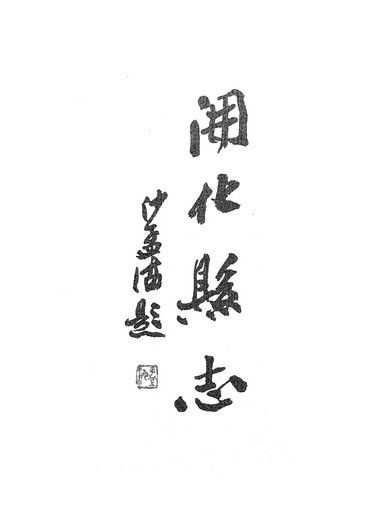 開化縣志
沙孟海題